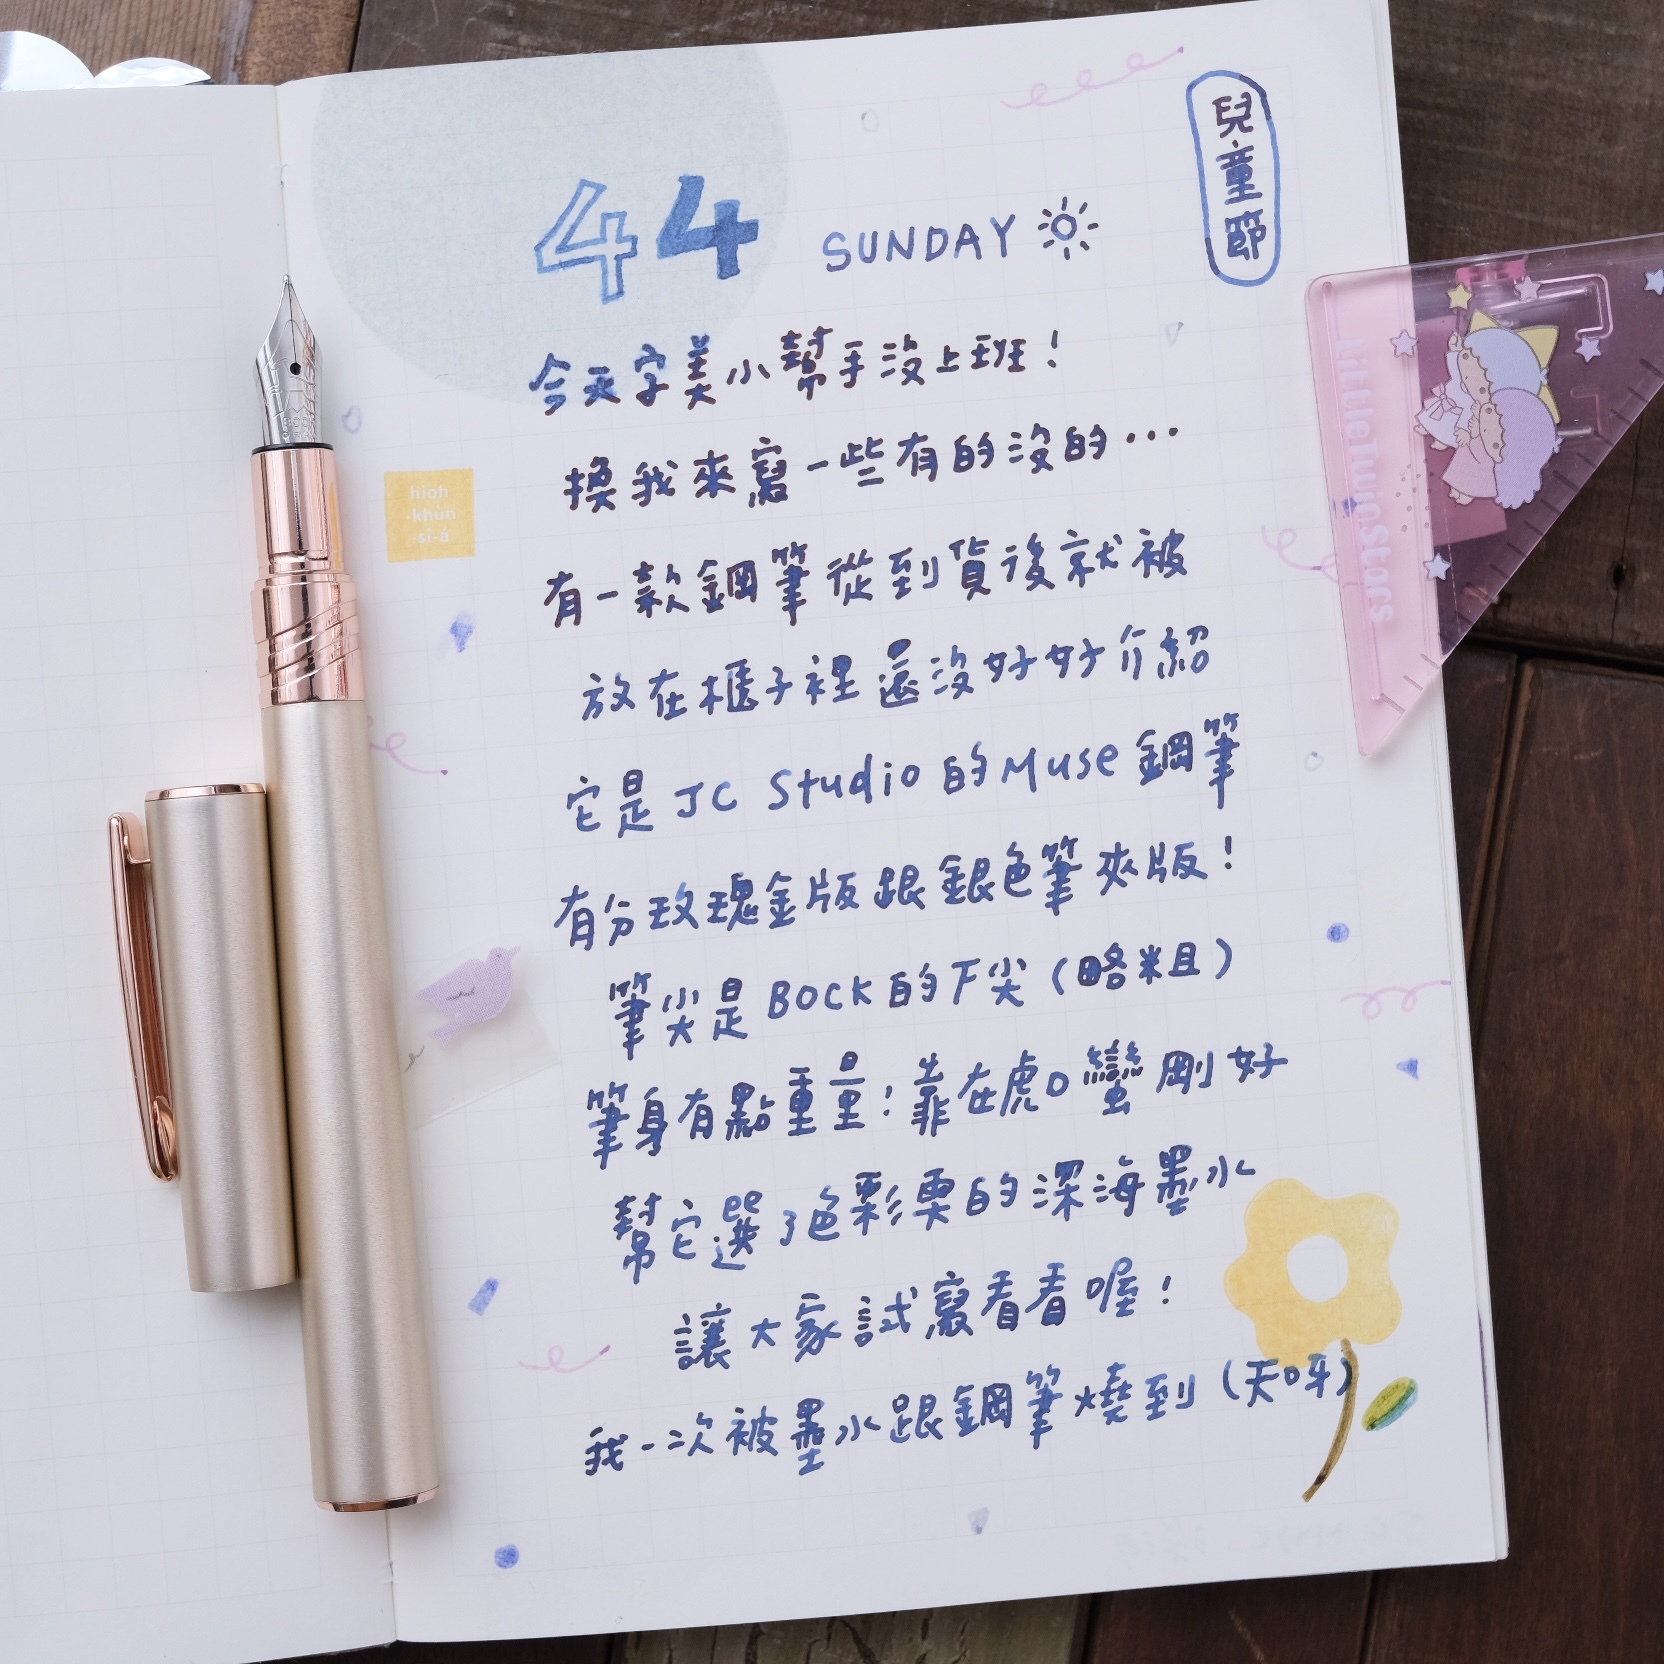 44 SUNDAY
兒童節
今天字美小幫手沒上班！
換我來寫一些有的沒的…
有一款鋼筆從到貨後就被
放在櫃子裡還沒好好介紹
它是 JC Studio 的 Muse 鋼筆
有分玫瑰金版跟銀色筆夾版！
筆尖是 BOCK 的 F尖（略粗）
筆身有點重量！靠在虎口蠻剛好
幫它選了色彩栗的深海墨水
讓大家試寫看看喔！
我一次被墨水跟鋼筆燒到（天呀）
hioh
-khùn
-sî-á
LittleTwinStars